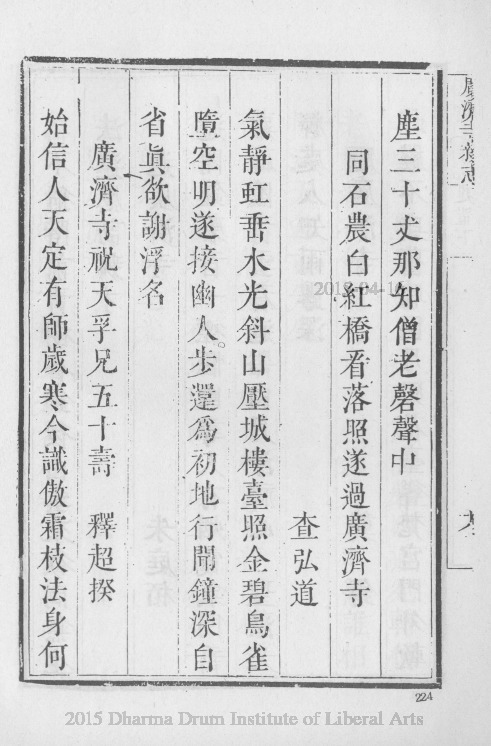 塵三十丈那知僧老磬聲中
同石農白紅橋看落照遂過廣濟寺
查弘道
氣靜虹垂水光斜山壓城樓臺照金碧烏雀
墮空明遂接幽人步還為初地行聞鐘深自
省眞欲謝浮名
廣濟寺祝天孚兄五十壽 釋超揆
始信人天定有師歲寒今識傲霜枝法身何
廣濟寺新志
224
2015 Dharma Drum Institute of Liberal Arts